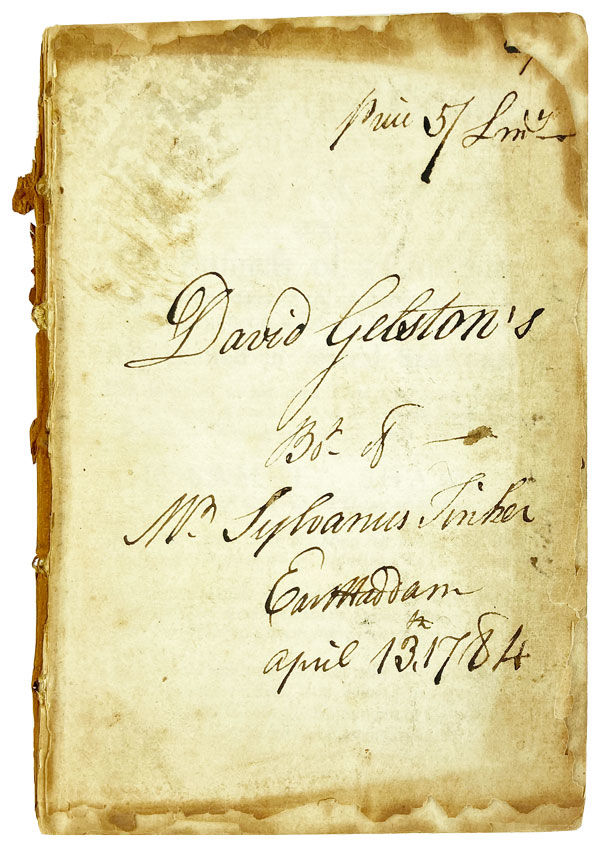 Price 5/ Lm.y
David Gelston's
Bo.t of
M.r Sylvanus Tinker
East Haddam
april 13.th 1784